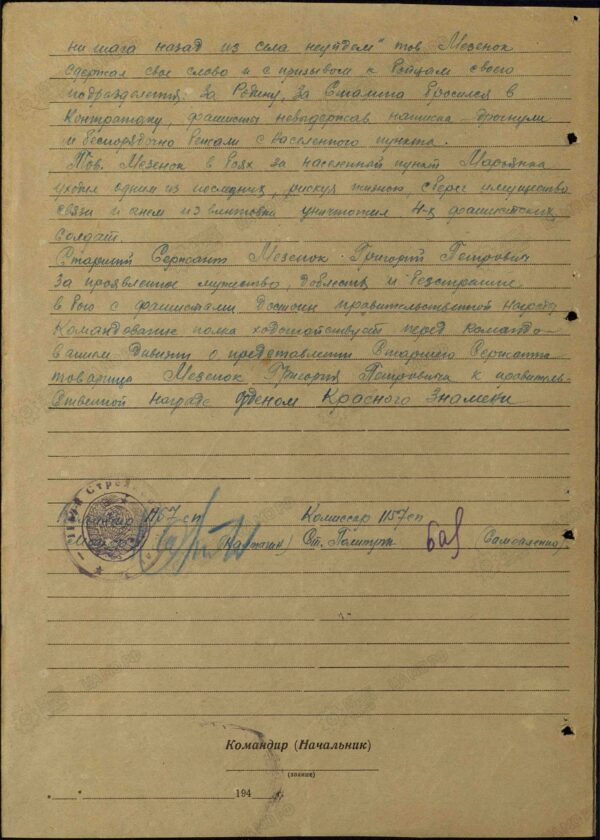 ни шага назад из села неуйдем" тов. Мезенок
сдержал свое слово и с призывом к Бойцам своего
подразделения: За Родину, За Сталина бросился в
Контратаку, фашисты невыдержав натиска дрогнули
и беспорядочно бежали с населенного пункта.
Тов. Мезенок в боях за населенный пункт Марьянка
уходил одним из последних, рискуя жизнью, сберег имущество
связи и огнем из винтовки уничтожил 4-х фашистских
солдат.
Старший Сержант Мезенок Григорий Петрович
За проявленное мужество, доблесть и бесстрашие
в бою с фашистами достоин правительственной награды
Командование полка ходотайствует перед командо-
ванием дивизии о представлении Старшего Сержанта
товарища Мезенок Григория Петровича к правитель-
ственной награде Орденом Красного Знамени
1157 сп
Комиссар 1157 сп
Ст. Политрук
Командир (Начальник)
(звание)
194 г.